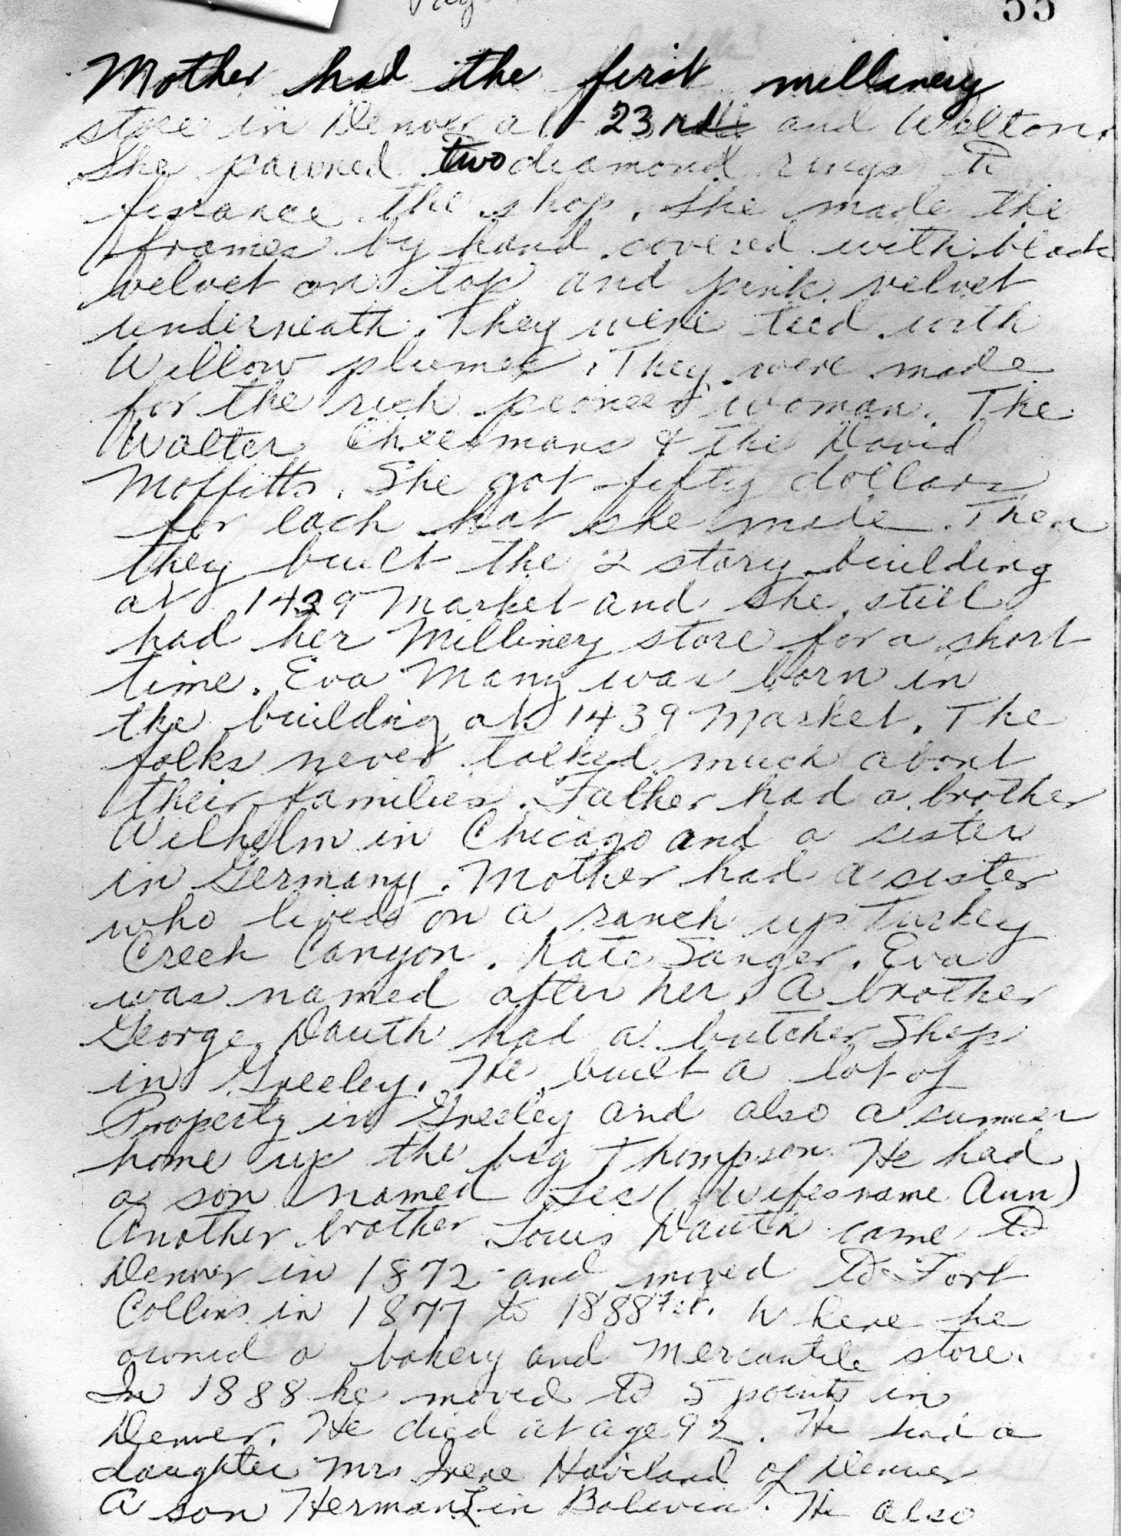 55
Mother had the first millinery
store in Denver at 23rd and Welton.
She pawned two diamond rings to
finance the shop. She made the
frames by hand covered with black
velvet on top and pink velvet
underneath. They were tied with
Willow plumes. They were made
for the rich pioneer woman. The
Walter Cheesmans & the David
Moffitts. She got fifty dollars
for each hat she made. Then
they built the 2 story building
at 1439 Market and she still
had her Millinery store for a short
time. Eva Many was born in
the building at 1439 Market. The
folks never talked much about
their families. Father had a brother
Wilhelm in Chicago and a sister
in Germany. Mother had a sister
who lived on a ranch up Turkey
Creek Canyon. Kate Sanger. Eva
was named after her. A brother
George Dauth had a butcher Shop
in Greeley. He built a lot of
Property in Greeley and also a summer
home up the big Thompson He had
a son named Les (Wifes name Ann)
Another brother Louis Dauth came to
Denver in 1872 and moved to Fort
Collins in 1877 to 1888 Where he
owned a bakery and Mercantile store.
In 1888 he moved to 5 points in
Denver. He died at age 92. He had a
daughter Mrs Irene Haviland of Denver
A son Herman in Bolivia. He also